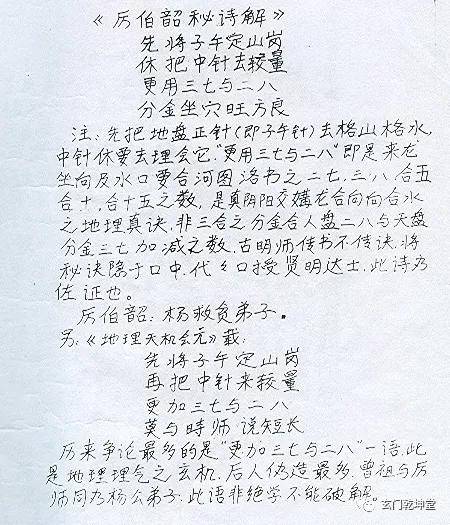 《厉伯韶秘诗解》
先将子午定山岗
休把中针去较量
更用三七与二八
分金坐穴旺方良
注:先把地盘正针(即子午针)去格山格水,
中针休要去理会它."更用三七与二八"即是来龙
坐向及水口要合河图洛书之二七.三八合五
合十,合十五之数,是真阴阳交媾龙合向向合水
之地理真诀,非三合之分金合人盘二八与天盘
分金三七加减之数,古明师传书不传诀,将
秘诀隐于口中,代々口授贤明达士,此诗乃
佐证也。
厉伯韶:杨救贫弟子。
另:《地理天机会元》载:
先将子午定山岗
再把中针来较量
更加三七与二八
莫与时师说短长
历来争论最多的是"更加三七与二八"一语,此
是地理理气之玄机.后人伪造最多.曾祖与厉
师同为杨公弟子.此语非绝学不能破解。
玄门乾坤堂